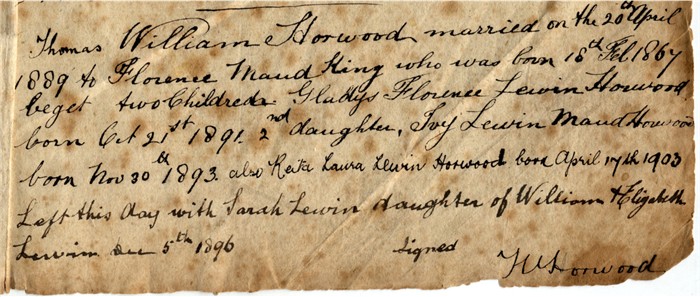 Thomas William Horwood married on the 20th April
1889 to Florence Maud King who was born 18th Feb 1867
beget two Children Gladys Florence Lewin Horwood
born Oct 21st 1891. 2nd daughter, Ivy Lewin Maud Horwood
born Nov 30th 1893. also Reita Laura Lewin Horwood born April 17th 1903
Left this day with Sarah Lewin daughter of William & Elizabeth
Lewin Dec 5th 1896 Signed
TW Horwood